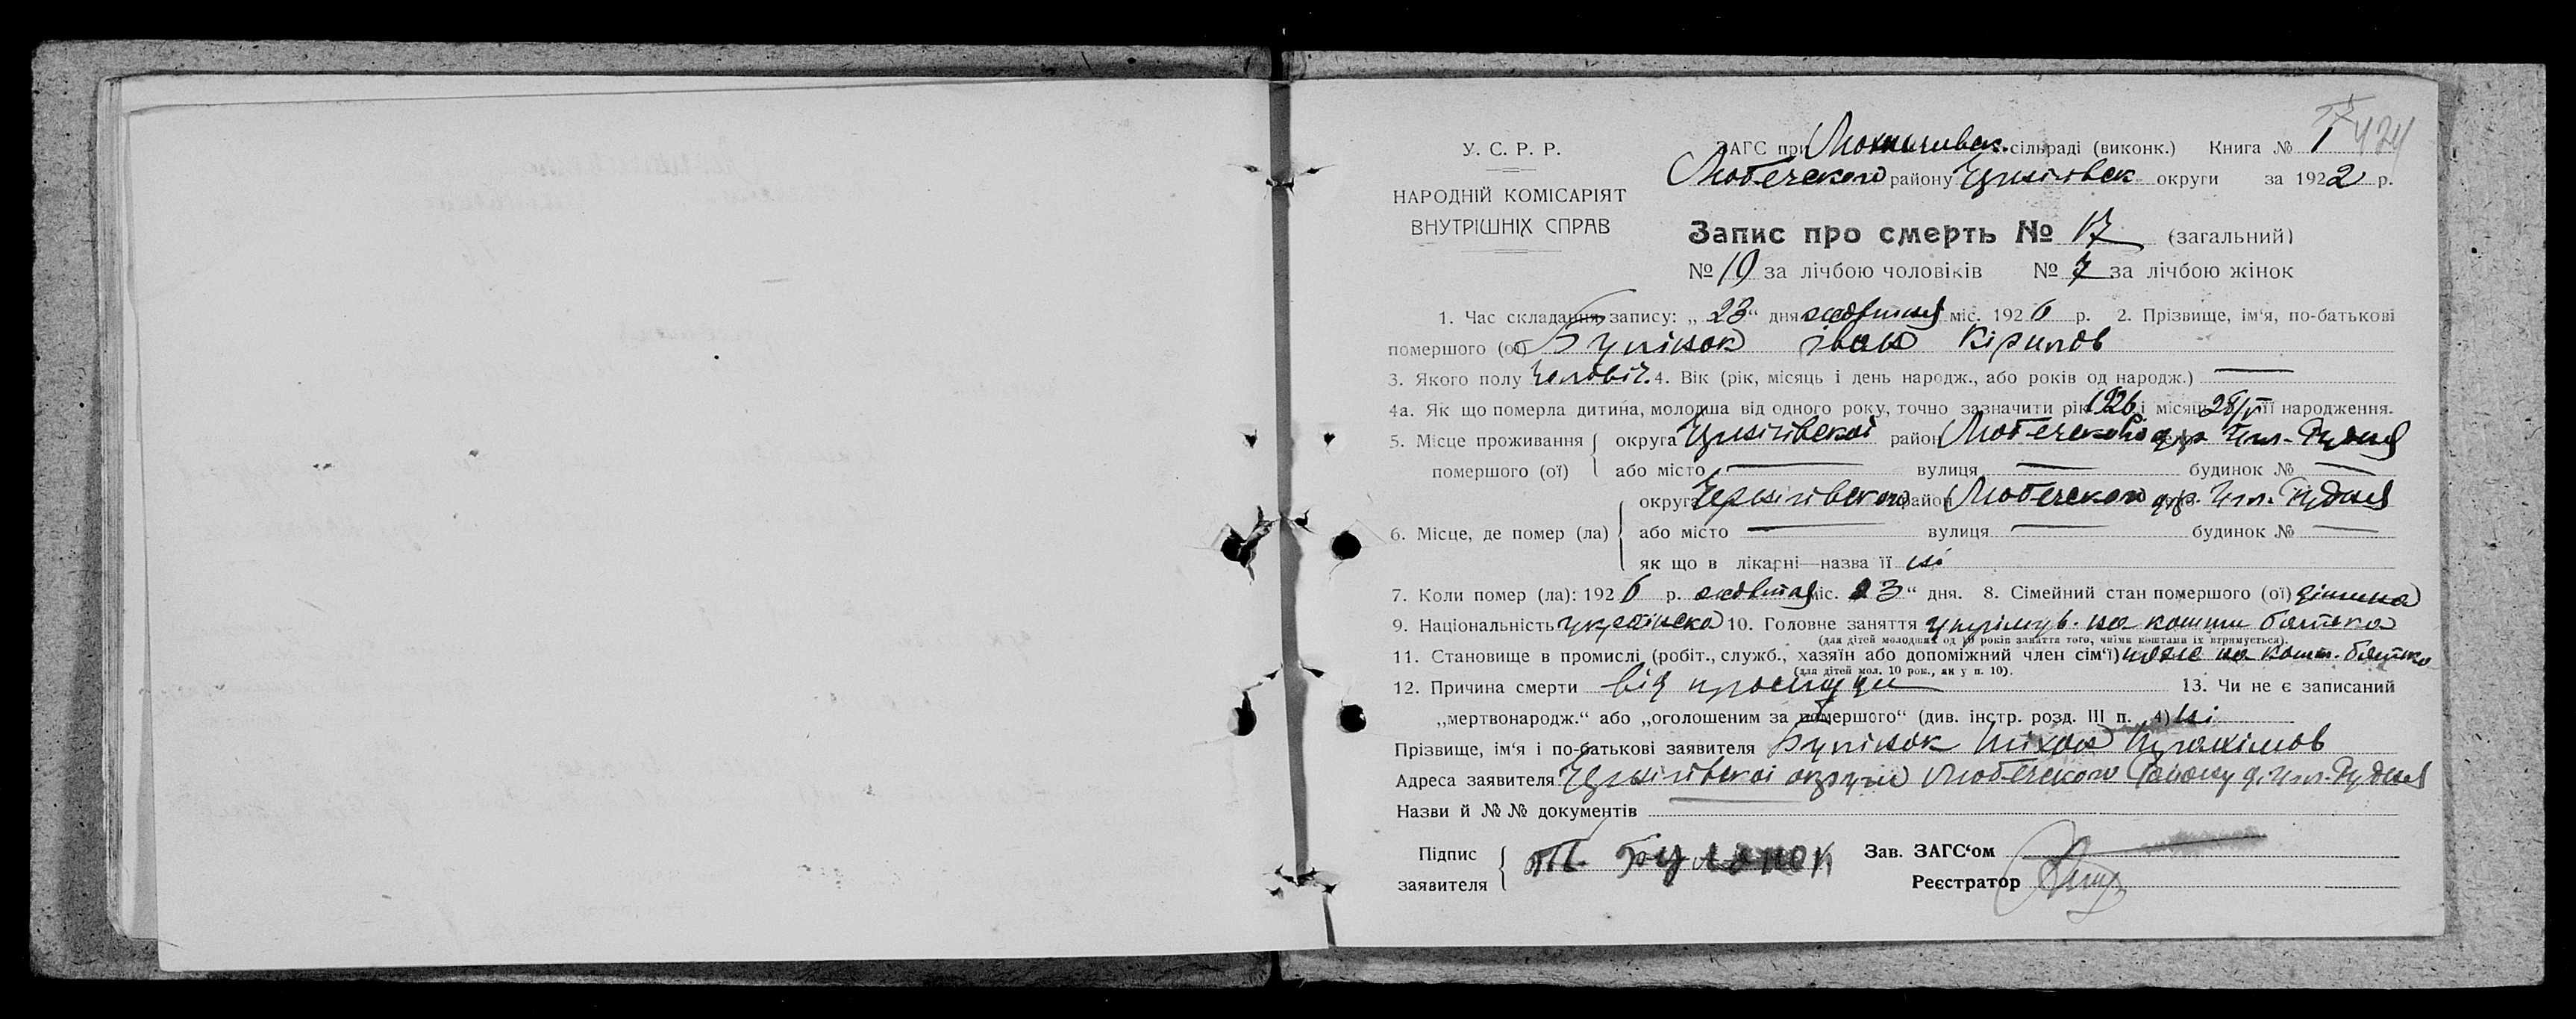 424
У. С. Р. Р.
НАРОДНІЙ КОМІСАРІЯТ
ВНУТРІШНІХ СПРАВ
ЗАГС при сільраді (виконк.) Книга № 1
Любечского району округи за 1922 р.
Запис про смерть № 17 (загальний)
№ 10 за лічбою чоловіків № 7 за лічбою жінок
1. Час складання запису: „ 23 “ дня жовтня міс. 1926 р. 2. Прізвище, ім‘я, по-батькові
помершого (ої) іван Кірилов
3. Якого полу Чоловіч. 4. Вік (рік, місяць і день народж., або років од народж.) —
4а. Як що померла дитина, молодша від одного року, точно зазначити рік 1926 і місяць її народження.
5. Місце проживання помершого (ої) округа район Любечского Рудня
або місто — вулиця — будинок № —
6. Місце, де помер (ла) округа Чернігівского район Любечского Рудня
або місто — вулиця — будинок № —
як що в лікарні—назва її ні
7. Коли помер (ла): 1926 р. жовтня міс. 23 “ дня. 8. Сімейний стан помершого (ої) дитина
9. Національність українска 10. Головне заняття на кошти батька
(для дітей молодших од 10 років заняття того, чиїми коштами їх втримується).
11. Становище в промислі (робіт., служб., хазяїн або допоміжний член сім‘ї) тоже на кошт. батька
(для дітей мол. 10 рок., як у п. 10).
12. Причина смерти від простуди 13. Чи не є записаний
„мертвонародж.“ або „оголошеним за помершого“ (див. інстр. розд. III п. 4) ні
Прізвище, ім‘я і по-батькові заявителя
Адреса заявителя округи Любечского Району Рудня
Назви й № № документів —
Підпис заявителя Зав. ЗАГС‘ом —
Реєстратор